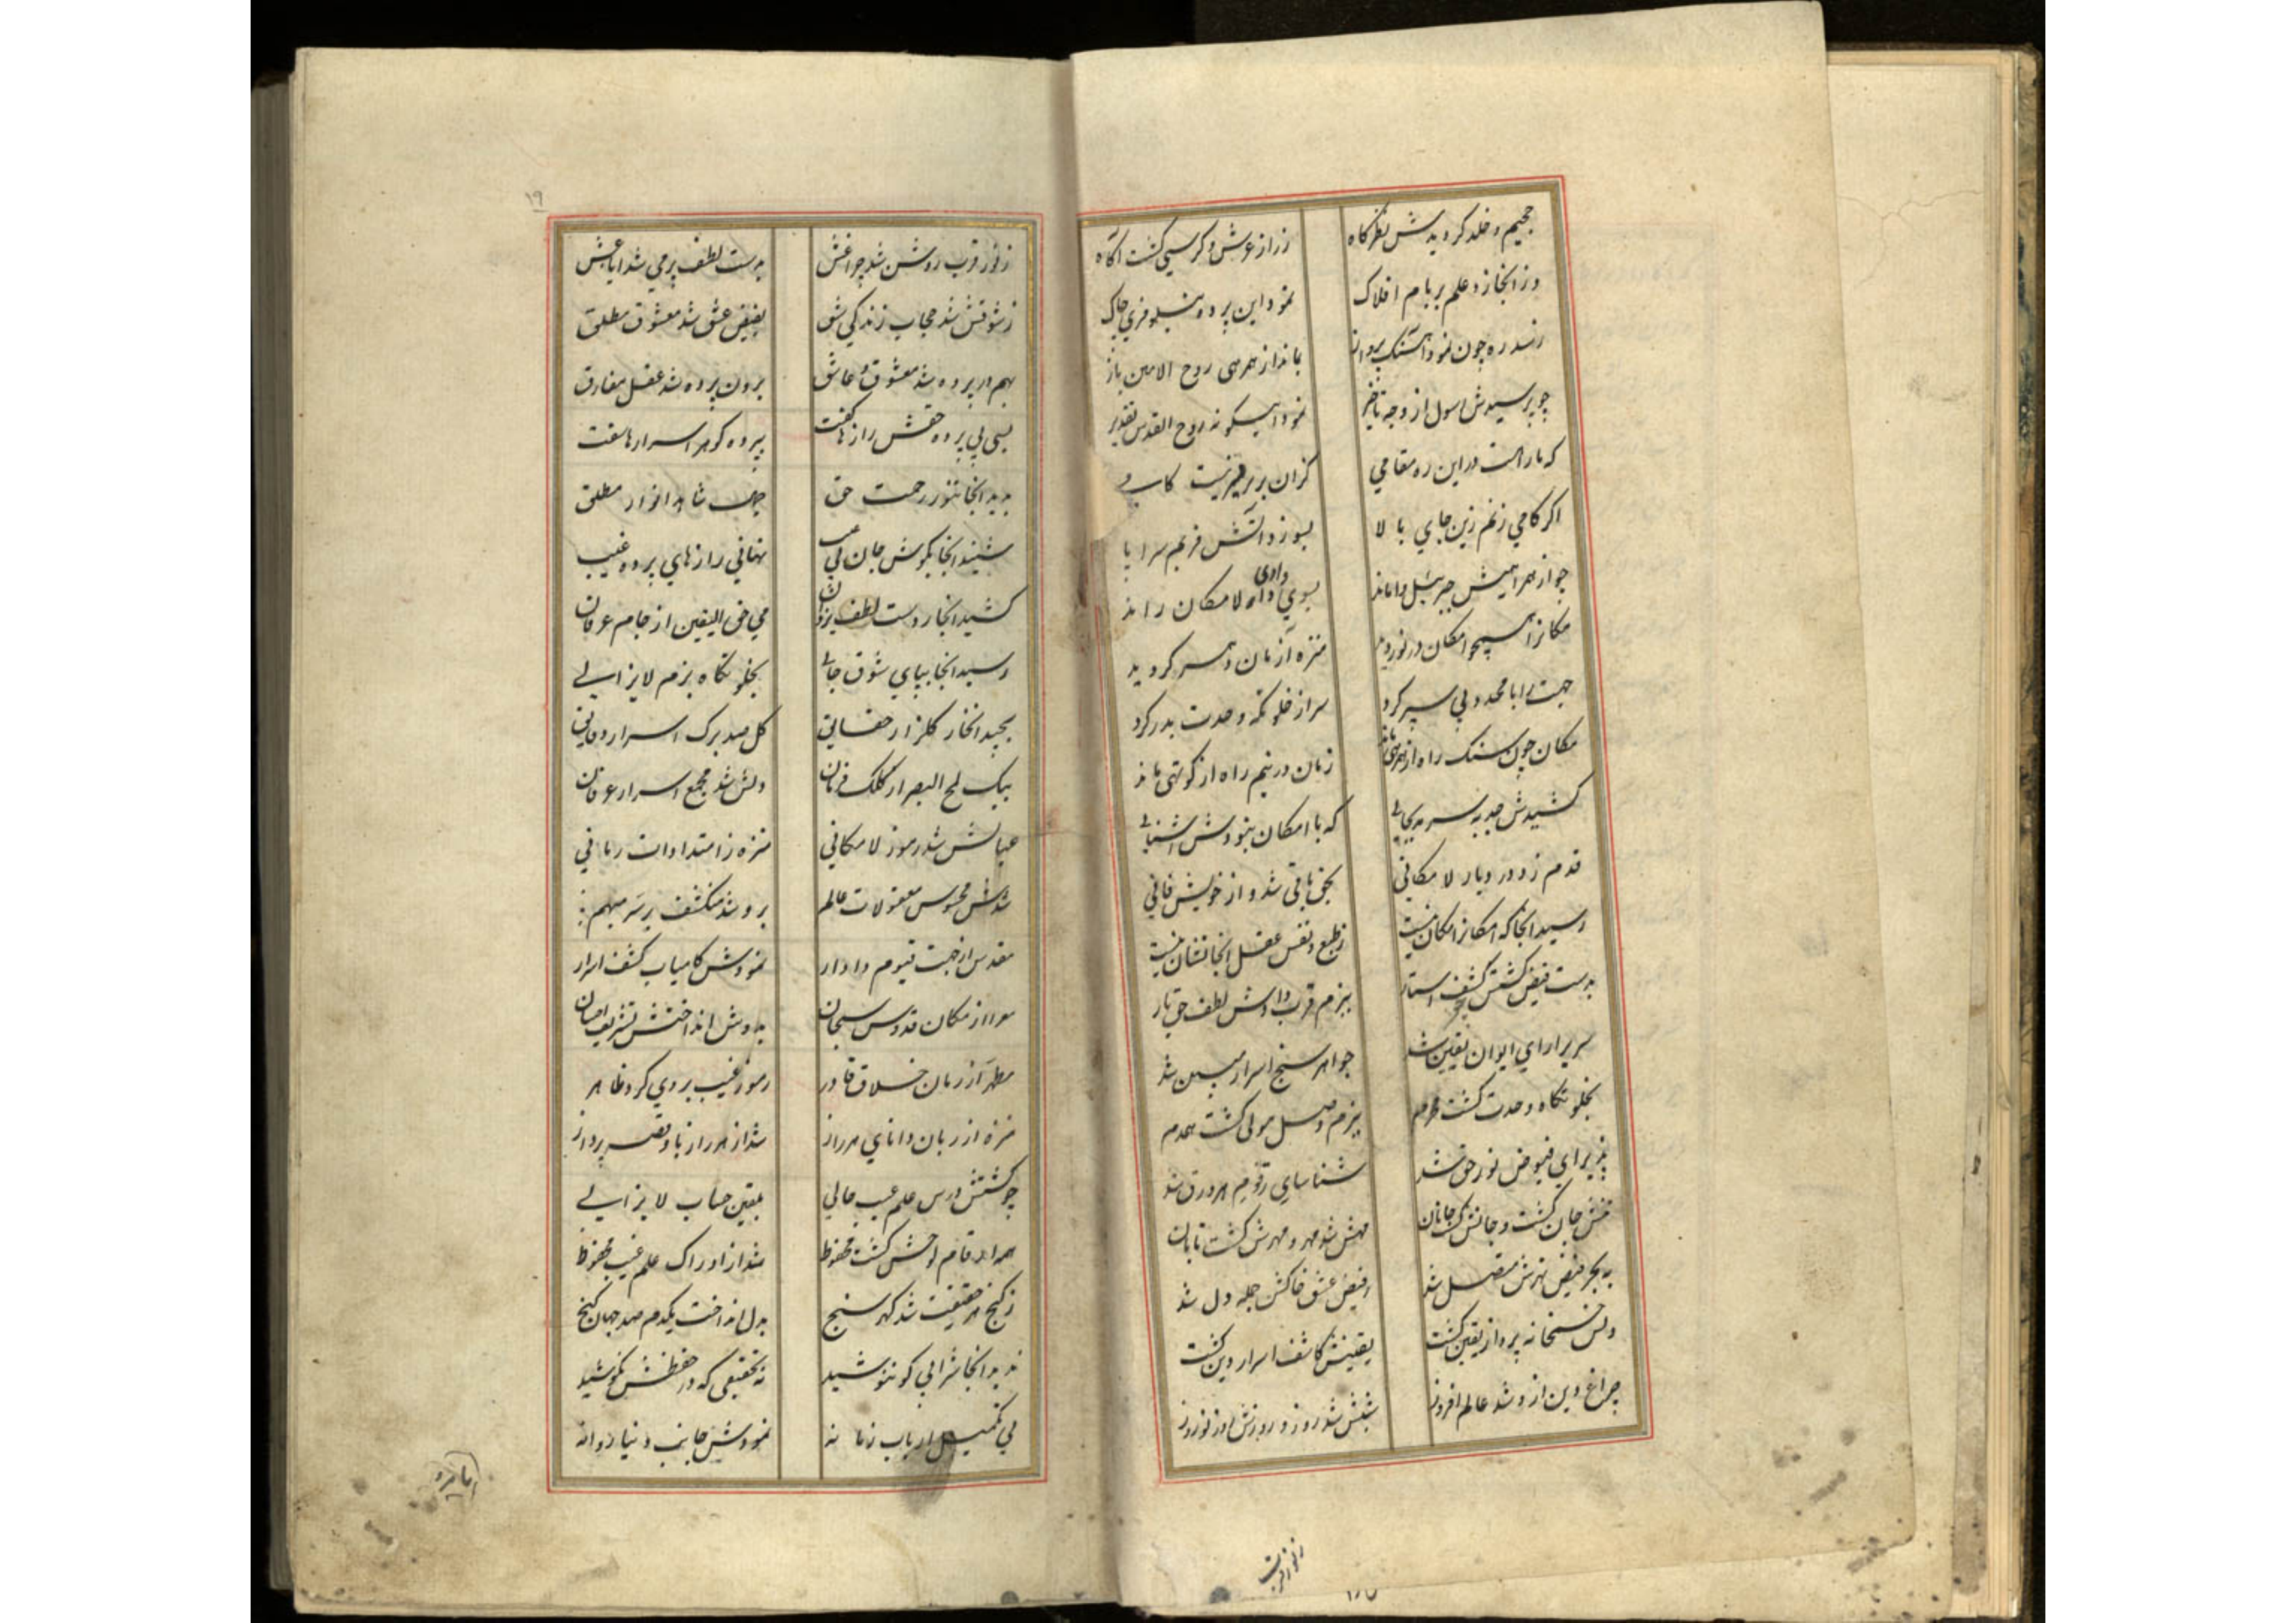 جحیم و خلد کردیدش نظرکاه
ز راز عرش و کرسی کشت آکاه
وز انجا زد علم بر بام افلاک
نمود این پرده نیلوفری چاک
ره چون نمود آهنک پرواز
بماند از همرهی روح الامین باز
چو پرسیدش رسول از وجه تاخیر
نمود اینکونه روح القدس تقریر
که ما راهست در این ره مقامی
کزان برتر نیست
اکر کامی زنم زین جای بالا
بسوزد آتش قربم سراپا
چو از همراهیش جبرئیل واماند
بسوی وادی لامکان راند
مکانرا همچو امکان در نوردید
منزه از زمان و کردید
جهت را با محدد پی سپر کرد
سر از خلوتکه وحدت بدر کرد
مکان چون سنک راه از همرهی ماند
زمان در نیم راه از کوتهی ماند
کشیدش جذبه
که با امکان نبودش آشنایی
قدم زد در دیار لامکانی
بحق باقی شد و از خویش فانی
رسید انجا که امکانرا مکان نیست
ز طبع و نفس و عقل انجا نشان نیست
بدست فیض کشتش کشف استار
ببزم قرب دادش لطف حق بار
سریر ارای ایوان یقین شد
جواهر سنج اسرار مبین شد
بخلوتکاه وحدت کشت محرم
ببزم وصل مولی کشت همدم
پذیرای فیوض نور حق شد
شناسای رقوم هر ورق شد
تنش جان کشت و جانش کشت جانان
مهش شد مهر و مهرش کشت تابان
به بحر فیض نهرش متصل شد
ز فیض عشق خاکش جمله دل شد
پرداز یقین کشت
یقینش کاشف اسرار دین کشت
چراغ دین ازو شد عالم افروز
شبش شد روز و روزش روز نوروز
ز نور قرب
۱۹
ز نور قرب روشن شد چراغش
بدست لطف پر می شد ایاغش
ز شوقش شد حجاب زندکی شق
بفیض عشق شد معشوق مطلق
بهم در پرده شد معشوق و عاشق
برون پرده شد عقل مفارق
بسی بی پرده حقش رازها کفت
پرده کوهر اسرارها سفت
بدید انجا بنور رحمت حق
شاهد انوار مطلق
شنید انجا بکوش جان بی عیب
نهانی رازهای پرده غیب
کشید انجا ز دست لطف یزدان
می حق الیقین از جام عرفان
رسید انجا بپای شوق
بخلوتکاه بزم لایزالی
بچید انجا ز کلزار حقایق
کل صد برک اسرار دقایق
بیک لمح البصر از کلک
دلش شد مجمع اسرار عرفان
عیانش شد رموز لامکانی
منزه ز امتدادات زمانی
شدش محسوس معقولات عالم
برو شد منکشف هر سر مبهم
مقدس از جهت قیوم دادار
نمودش کامیاب کشف اسرار
معرا از مکان قدوس سبحان
بدوش انداختش تشریف احسان
مطهر از زمان خلاق قادر
رموز غیب بر وی کرد ظاهر
منزه از زبان دانای هر راز
شد از هر راز با او نغمه پرداز
چو کشتش درس علم غیب حالی
بتلقین جناب لایزالی
همه ارقام لوحش کشت محفوظ
شد از ادراک علم غیب محظوظ
ز کنج هر حقیقت شد کهر سنج
بدل انداخت یکدم صد جهان کنج
ندید انجا شرابی کو ننوشید
نه تحقیقی که در حفظش نکوشید
پی تکمیل ارباب زمانه
نمودش جانب دنیا روانه